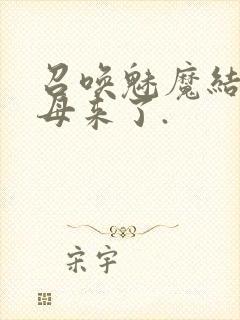 召唤魅魔結
母来了.
宋宇